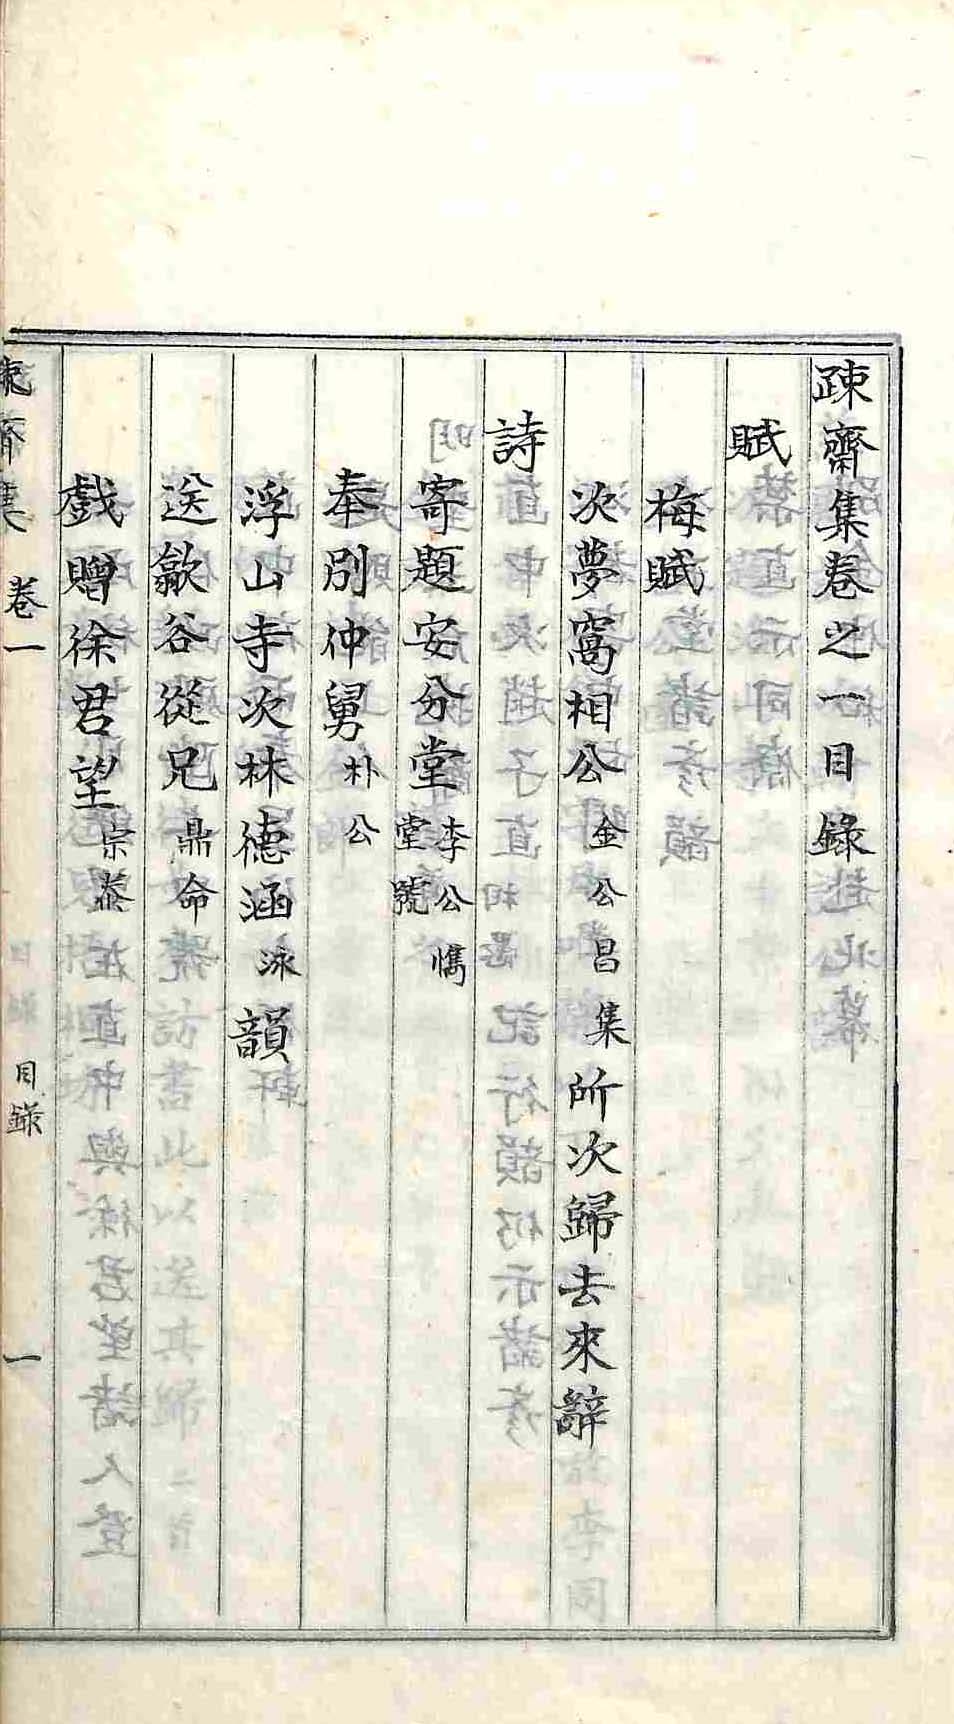 疎齋集卷之一目錄
賦
梅賦
次夢窩相公金公昌集所次歸去來辭
詩
寄題安分堂李公㒞堂號
奉別仲舅朴公
浮山寺次林德涵泳韻
送歙谷從兄鼎命
戲贈徐君望宗泰
卷一 目錄 一